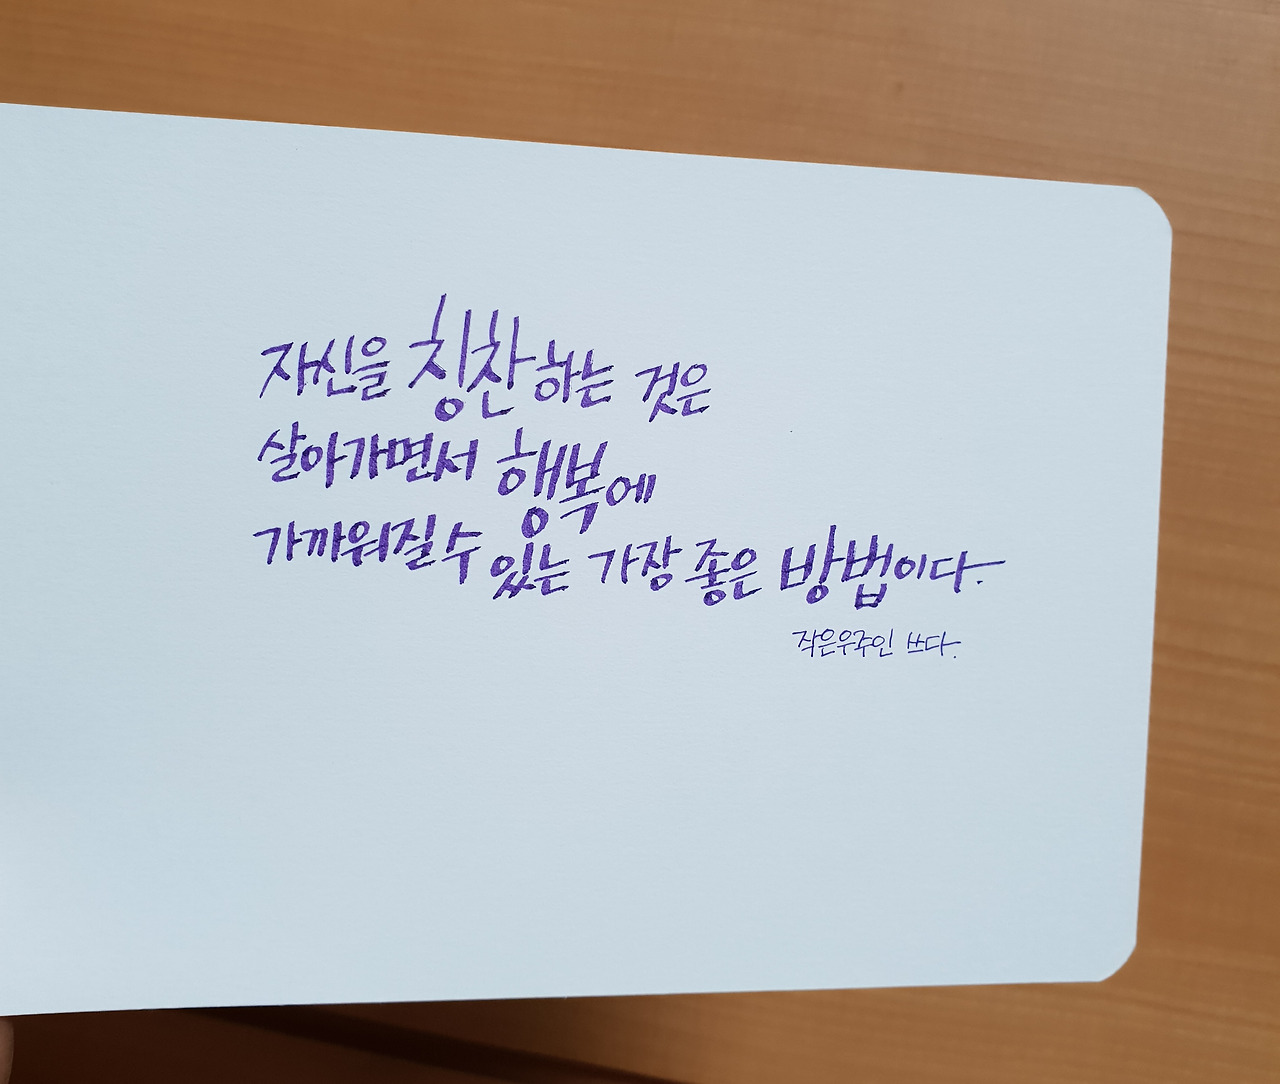 자신을 칭찬하는 것은
살아가면서 행복에
가까워질 수 있는 가장 좋은 방법이다.
작은우주인 쓰다.